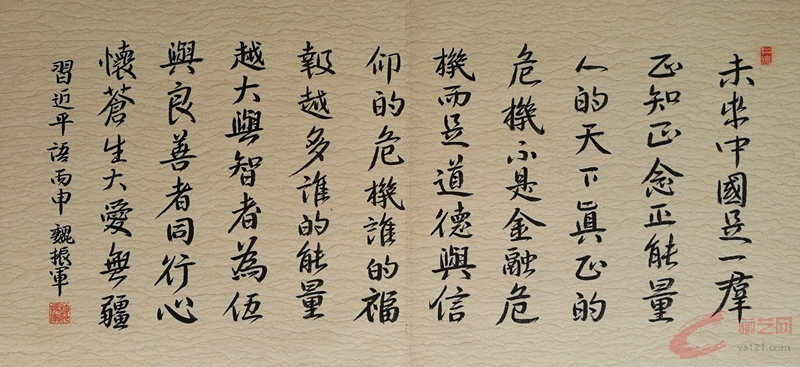 未來中國是一羣
正知正念正能量
人的天下真正的
危機不是金融危
機而是道德與信
仰的危機誰的福
報越多誰的能量
越大與智者為伍
與良善者同行心
懷蒼生大愛無疆
習近平語丙申魏振軍